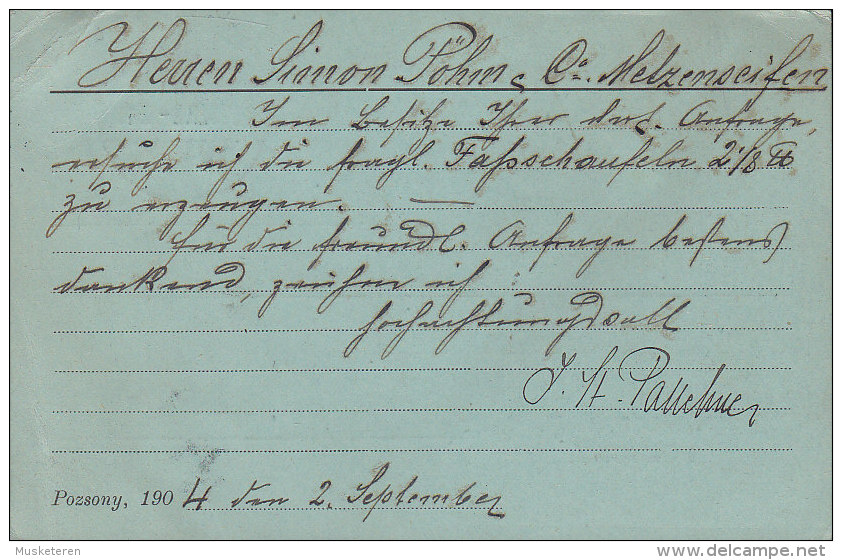 Herren Simon Böhm & Co. Metzenseifen
Im Besitze Ihrer dort. Anfrage,
ersuche ich die fragl. Faßschaufeln 2 1/8 ℔
zu erzeugen. —
Für die freundl. Anfrage bestens
dankend, zeichne ich
hochachtungsvoll
J. H.
Pozsony, 1904 den 2. September
Musketeren
www.delcampe.net